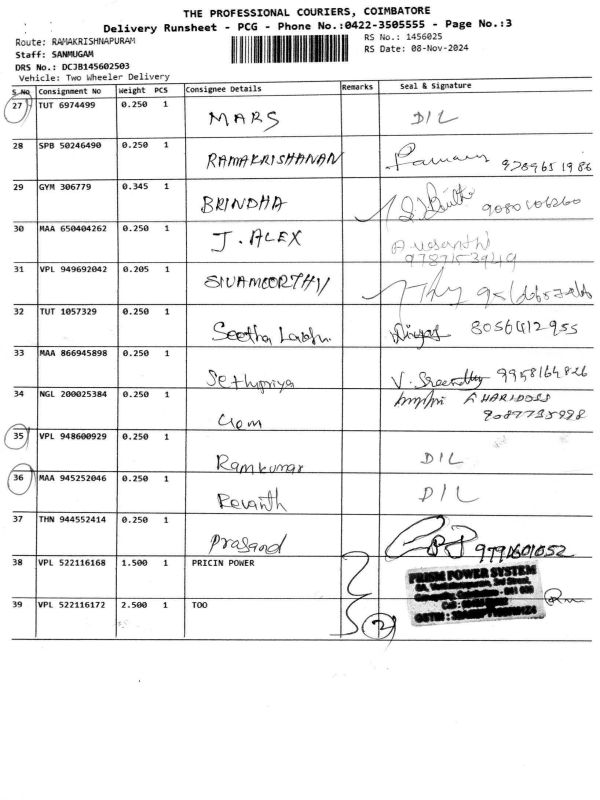 THE PROFESSIONAL COURIERS, COIMBATORE
Delivery Runsheet - PCG - Phone No.:0422-3505555 - Page No.:3
Route: RAMAKRISHNAPURAM
RS No.: 1456025
Staff: SANMUGAM
RS Date: 08-Nov-2024
DRS No.: DCJB145602503
Vehicle: Two Wheeler Delivery
S.No Consignment No Weight PCS Consignee Details Remarks Seal & Signature
27 TUT 6974499 0.250 1 MARS D/L
28 SPB 50246490 0.250 1 RAMAKRISHANAN 9789651986
29 GYM 306779 0.345 1 BRINDHA 9080106260
30 MAA 650404262 0.250 1 J. ALEX A.Vasanthi
9787153949
31 VPL 949692042 0.205 1 SIVAMOORTHY
32 TUT 1057329 0.250 1 Seetha 8056412955
33 MAA 866945898 0.250 1 Sethupriya V. 9958164826
34 NGL 200025384 0.250 1 Gem HARIDOSS
9087735998
35 VPL 948600929 0.250 1 Ramkumar D/L
36 MAA 945252046 0.250 1 Revanth D/L
37 THN 944552414 0.250 1 Prasand 9791601052
38 VPL 522116168 1.500 1 PRICIN POWER
PRISM POWER SYSTEM
39 VPL 522116172 2.500 1 TOO 2